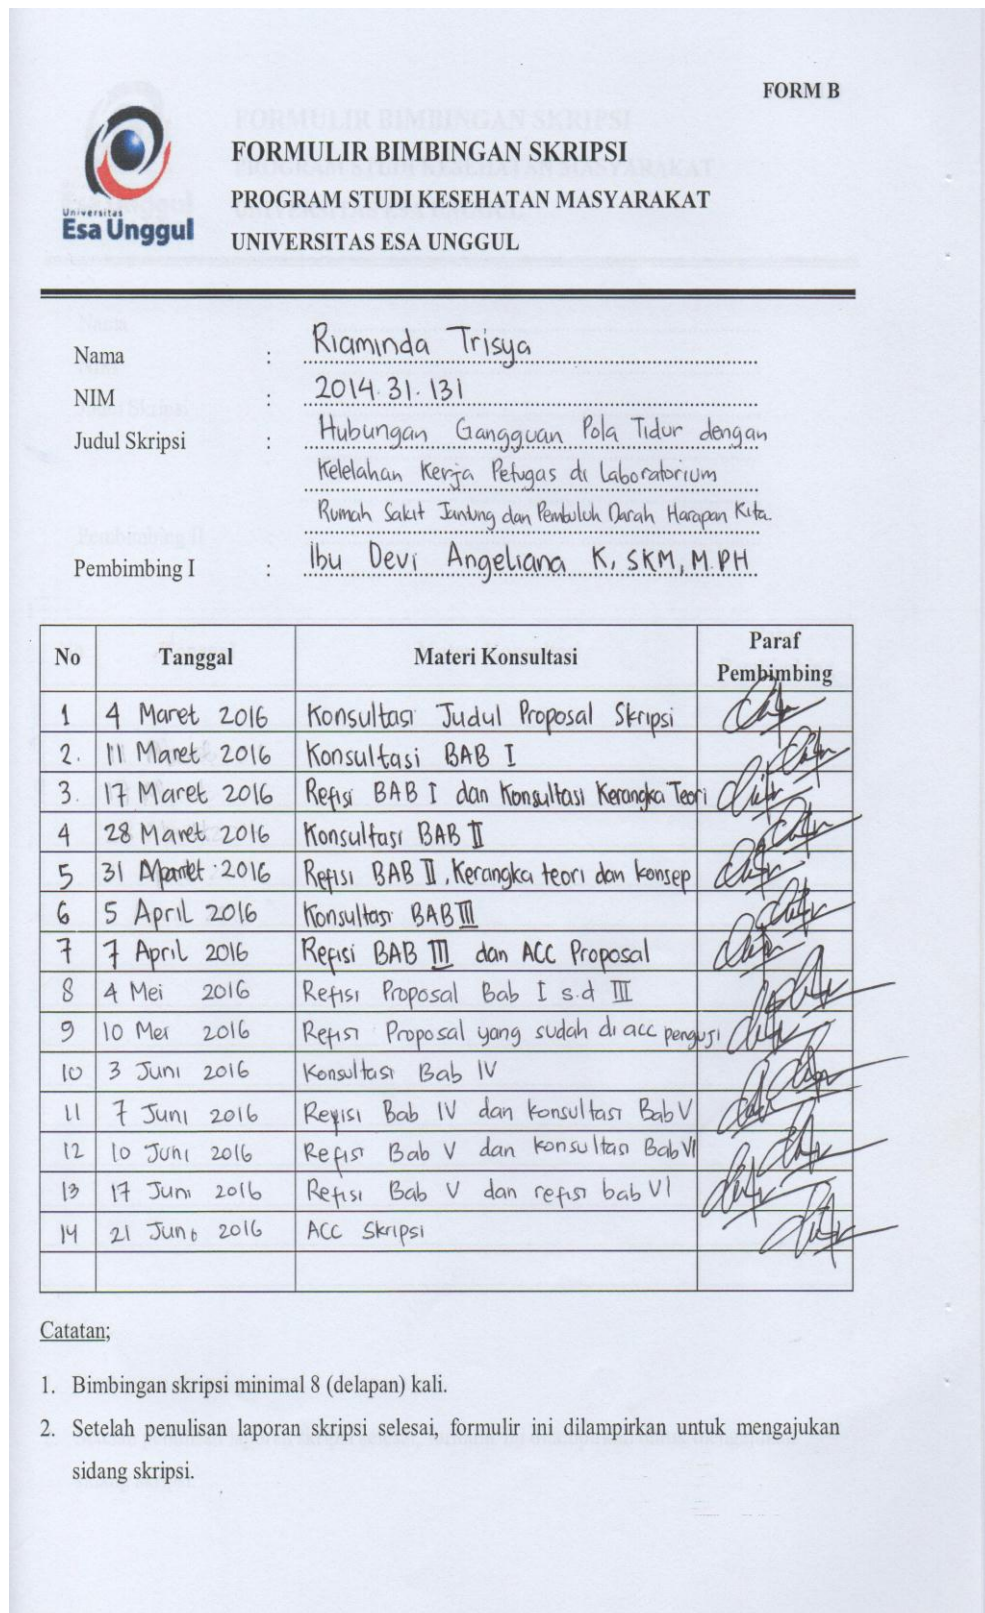 FORM B
Universitas
Esa Unggul
FORMULIR BIMBINGAN SKRIPSI
PROGRAM STUDI KESEHATAN MASYARAKAT
UNIVERSITAS ESA UNGGUL
Nama : Riaminda Trisya
NIM : 2014.31.131
Judul Skripsi : Hubungan Gangguan Pola Tidur dengan
Kelelahan Kerja Petugas di Laboratorium
Rumah Sakit Jantung dan Pembuluh Darah Harapan Kita.
Pembimbing I : Ibu Devi Angeliana K, SKM, M.PH
No Tanggal Materi Konsultasi Paraf Pembimbing
1 4 Maret 2016 Konsultasi Judul Proposal Skripsi
2. 11 Maret 2016 Konsultasi BAB I
3. 17 Maret 2016 Refisi BAB I dan Konsultasi Kerangka Teori
4 28 Maret 2016 Konsultasi BAB II
5 31 Maret 2016 Refisi BAB II, Kerangka teori dan konsep
6 5 April 2016 Konsultasi BAB III
7 7 April 2016 Refisi BAB III dan ACC Proposal
8 4 Mei 2016 Refisi Proposal Bab I s.d III
9 10 Mei 2016 Refisi Proposal yang sudah di acc penguji
10 3 Juni 2016 Konsultasi Bab IV
11 7 Juni 2016 Revisi Bab IV dan konsultasi Bab V
12 10 Juni 2016 Refisi Bab V dan konsultasi Bab VI
13 17 Juni 2016 Refisi Bab V dan refisi bab VI
14 21 Juni 2016 ACC Skripsi
Catatan;
1. Bimbingan skripsi minimal 8 (delapan) kali.
2. Setelah penulisan laporan skripsi selesai, formulir ini dilampirkan untuk mengajukan
sidang skripsi.